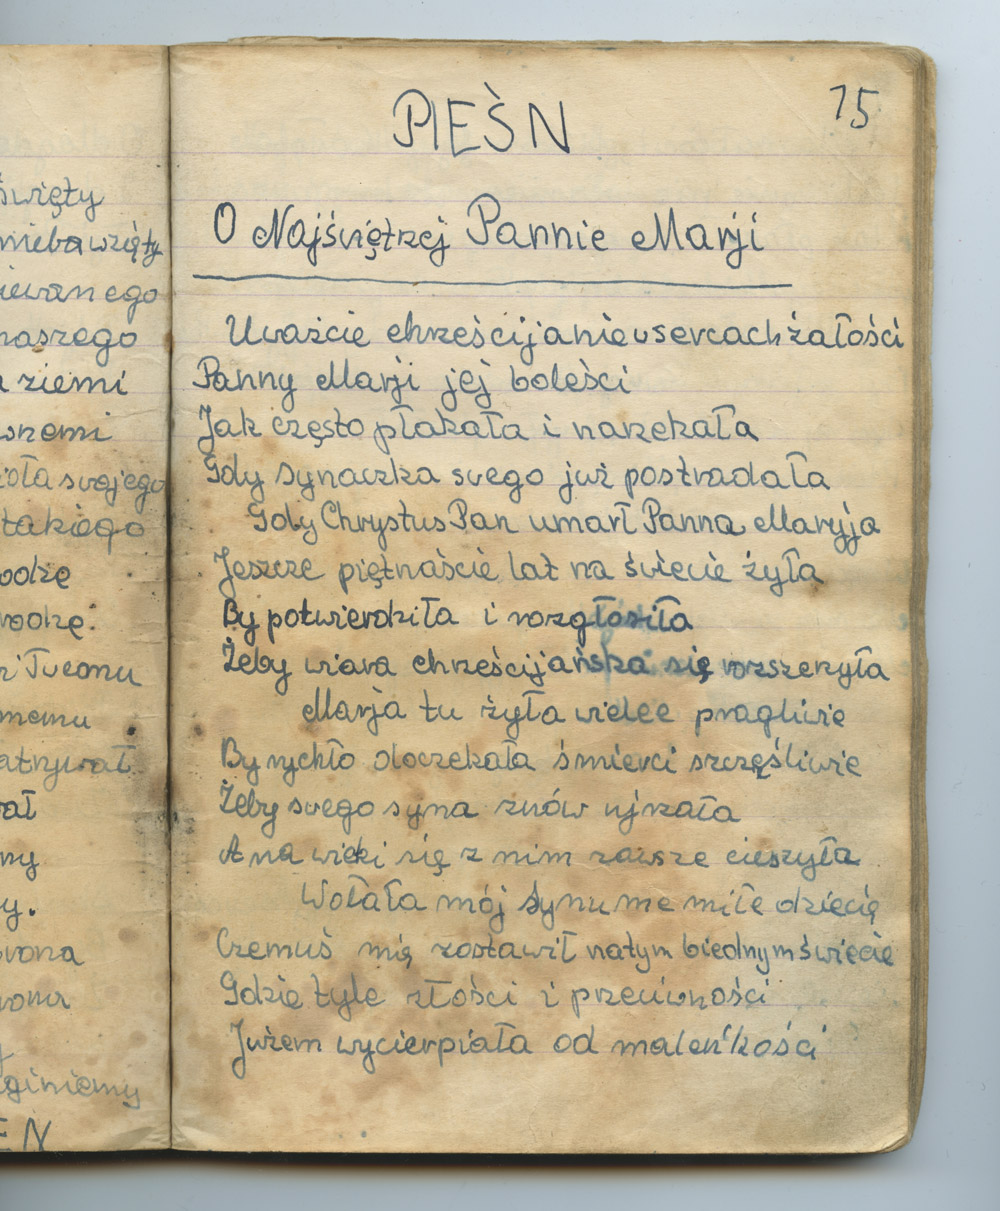 święty
nieba wzięty
naszego
ziemi
swojego
takiego
Twemu
giniemy
15
PIEŚN
O Najświętrzej Pannie Marji
Uważcie chrześcijanie w sercach żałości
Panny Marji jej boleści
Jak często płakała i narzekała
Gdy synaczka swego już postradała
Gdy Chrystus Pan umarł Panna Maryja
Jeszcze piętnaście lat na świecie żyła
By potwierdziła i rozgłosiła
Żeby wiara chrześcijańska się rozszerzyła
Marja tu żyła wielce pragliwie
By rychło doczekała śmierci szczęśliwie
Żeby swego syna znów ujrzała
A na wieki się z nim zawsze cieszyła
Wołała mój synu me miłe dziecię
Czemuś mię zostawił na tym biednym świecie
Gdzie tyle złości i przeciwności
Jużem wycierpiała od maleńkości